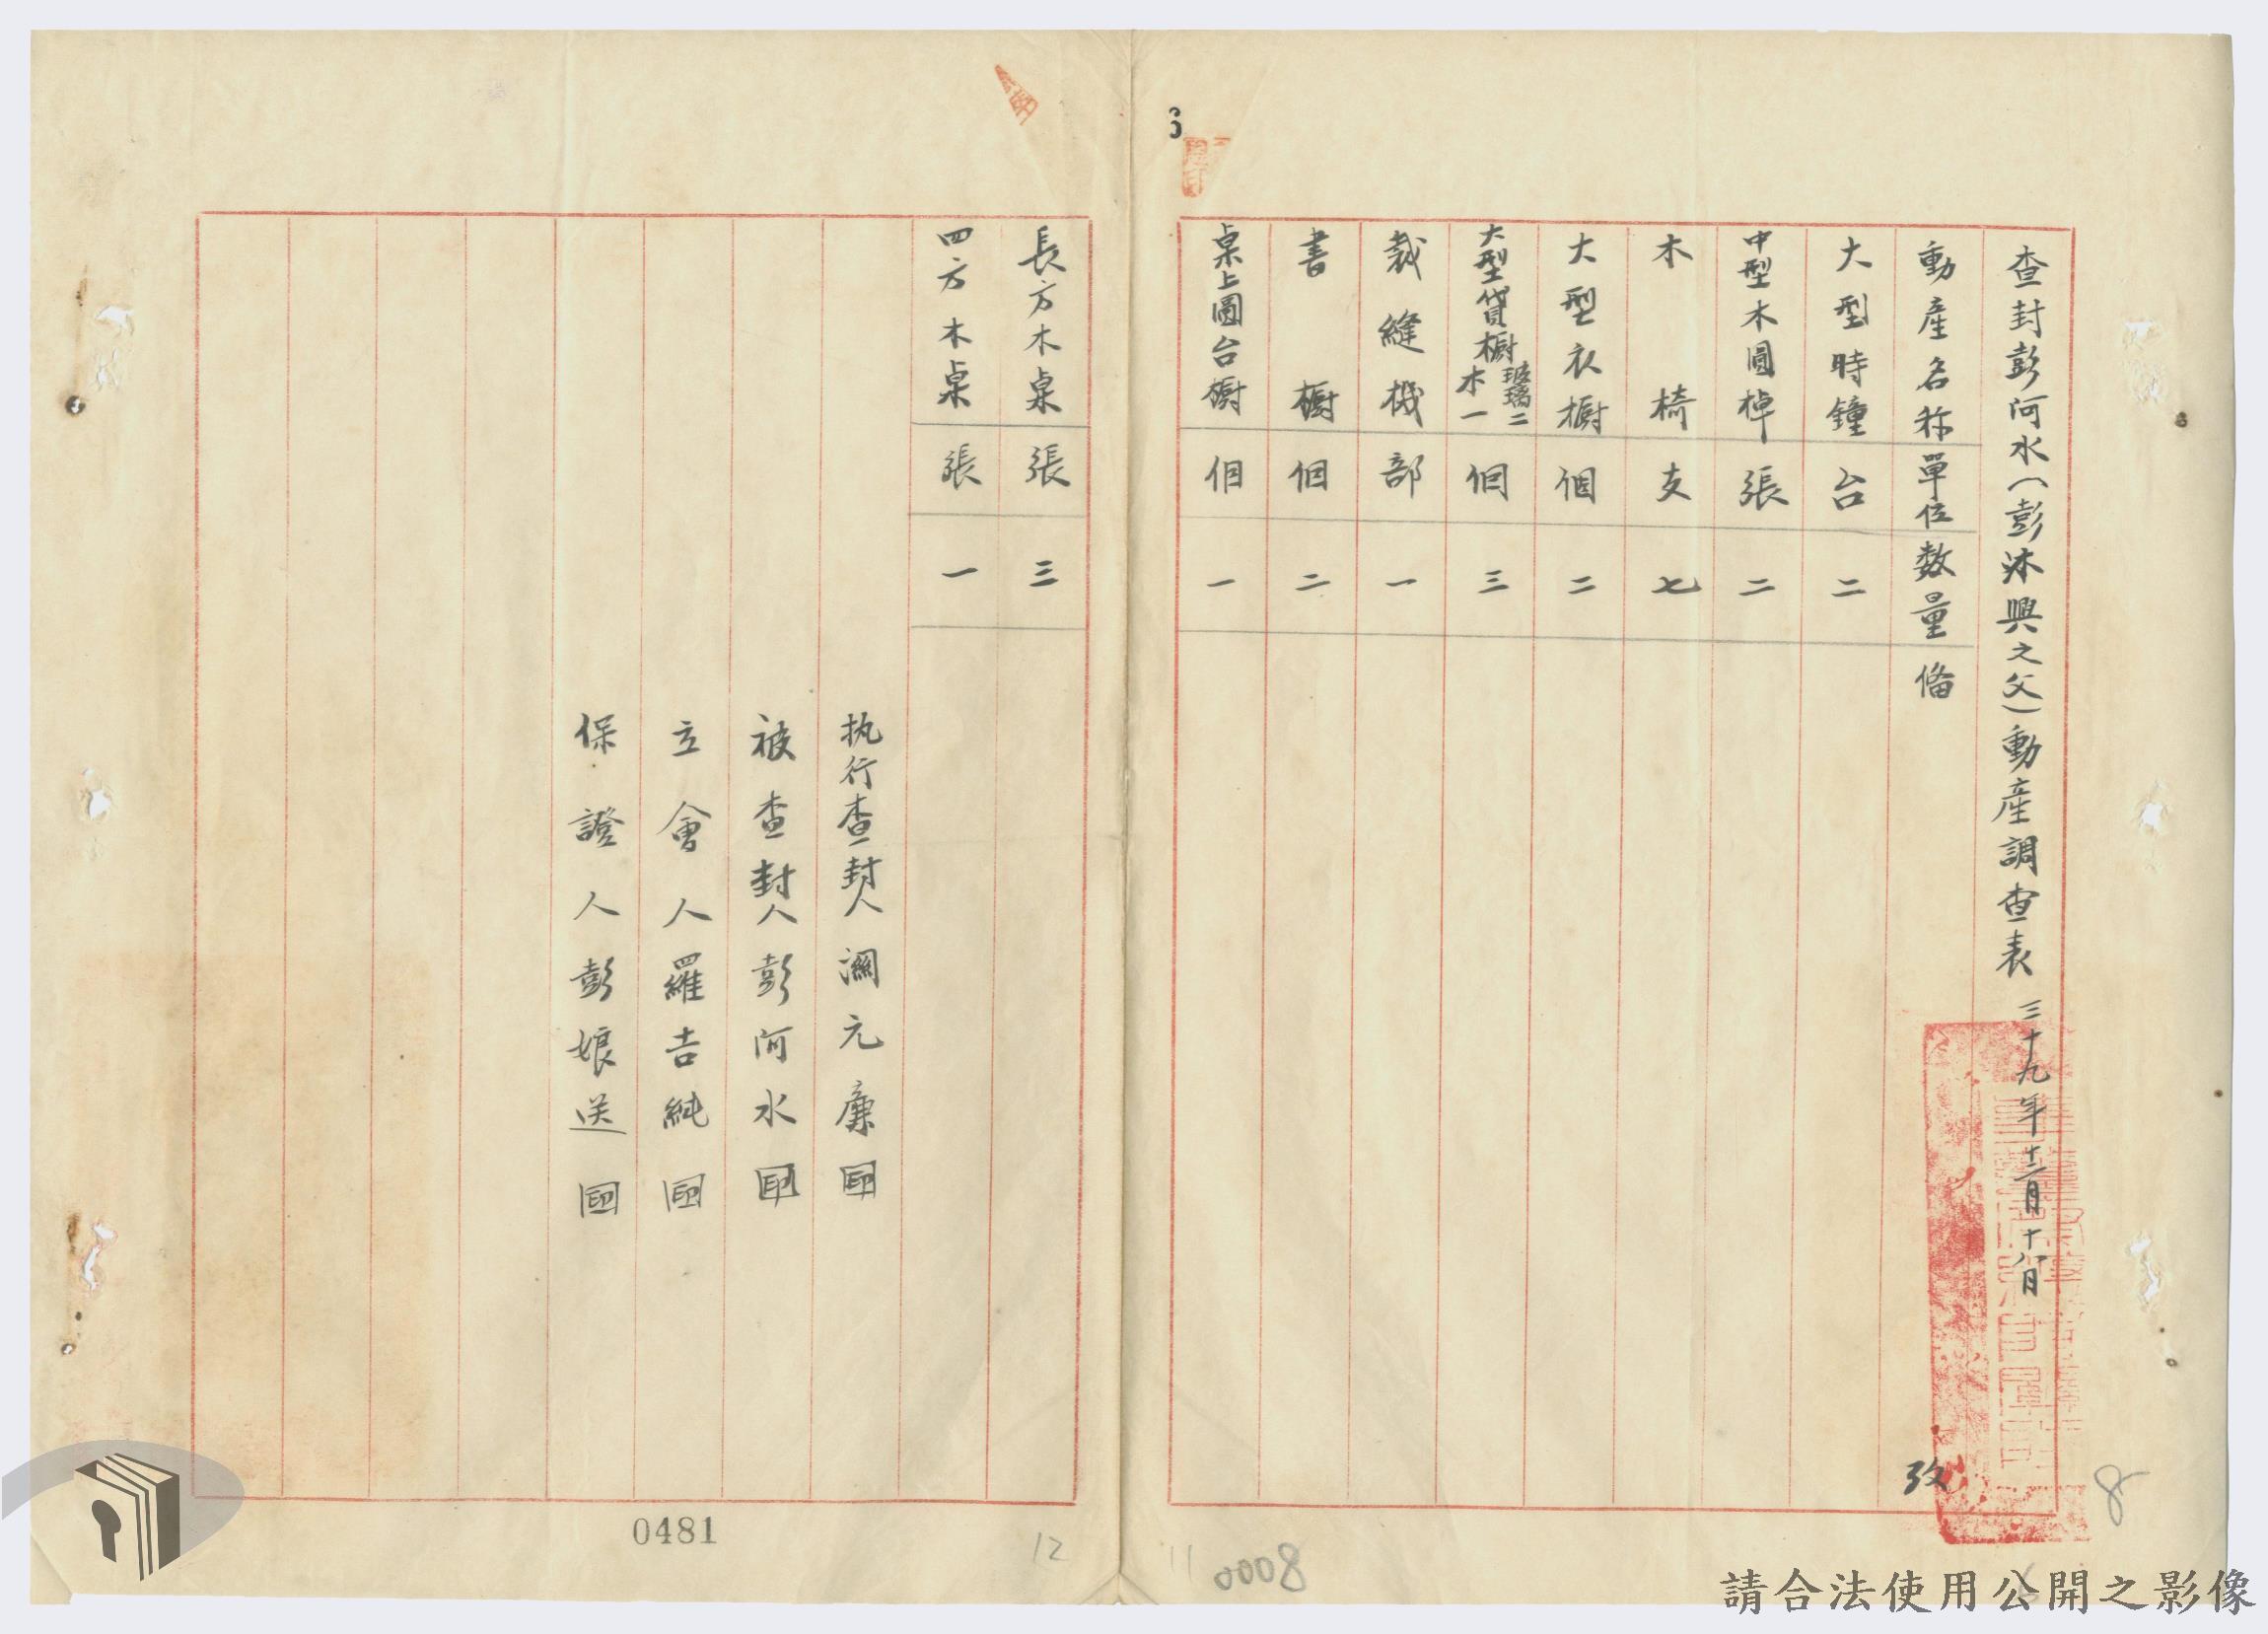 查封彭阿水(彭沐興之父)動產調查表 三十九年十二月十八月
動產名称 單位 数量 俻 攷
大型時鐘 台 二
中型木圓棹 張 二
木椅 支 七
大型衣橱 個 二
大型貸橱 玻璃二 木一 個 三
裁縫機 部 一
書橱 個 二
桌上圖台橱 個 一
長方木桌 張 三
四方木桌 張 一
执行查封人 元廉 印
被查封人彭阿水 印
立會人羅吉純 印
保證人彭娘送 印
0481
12
11
0008
8
請合法使用公開之影像